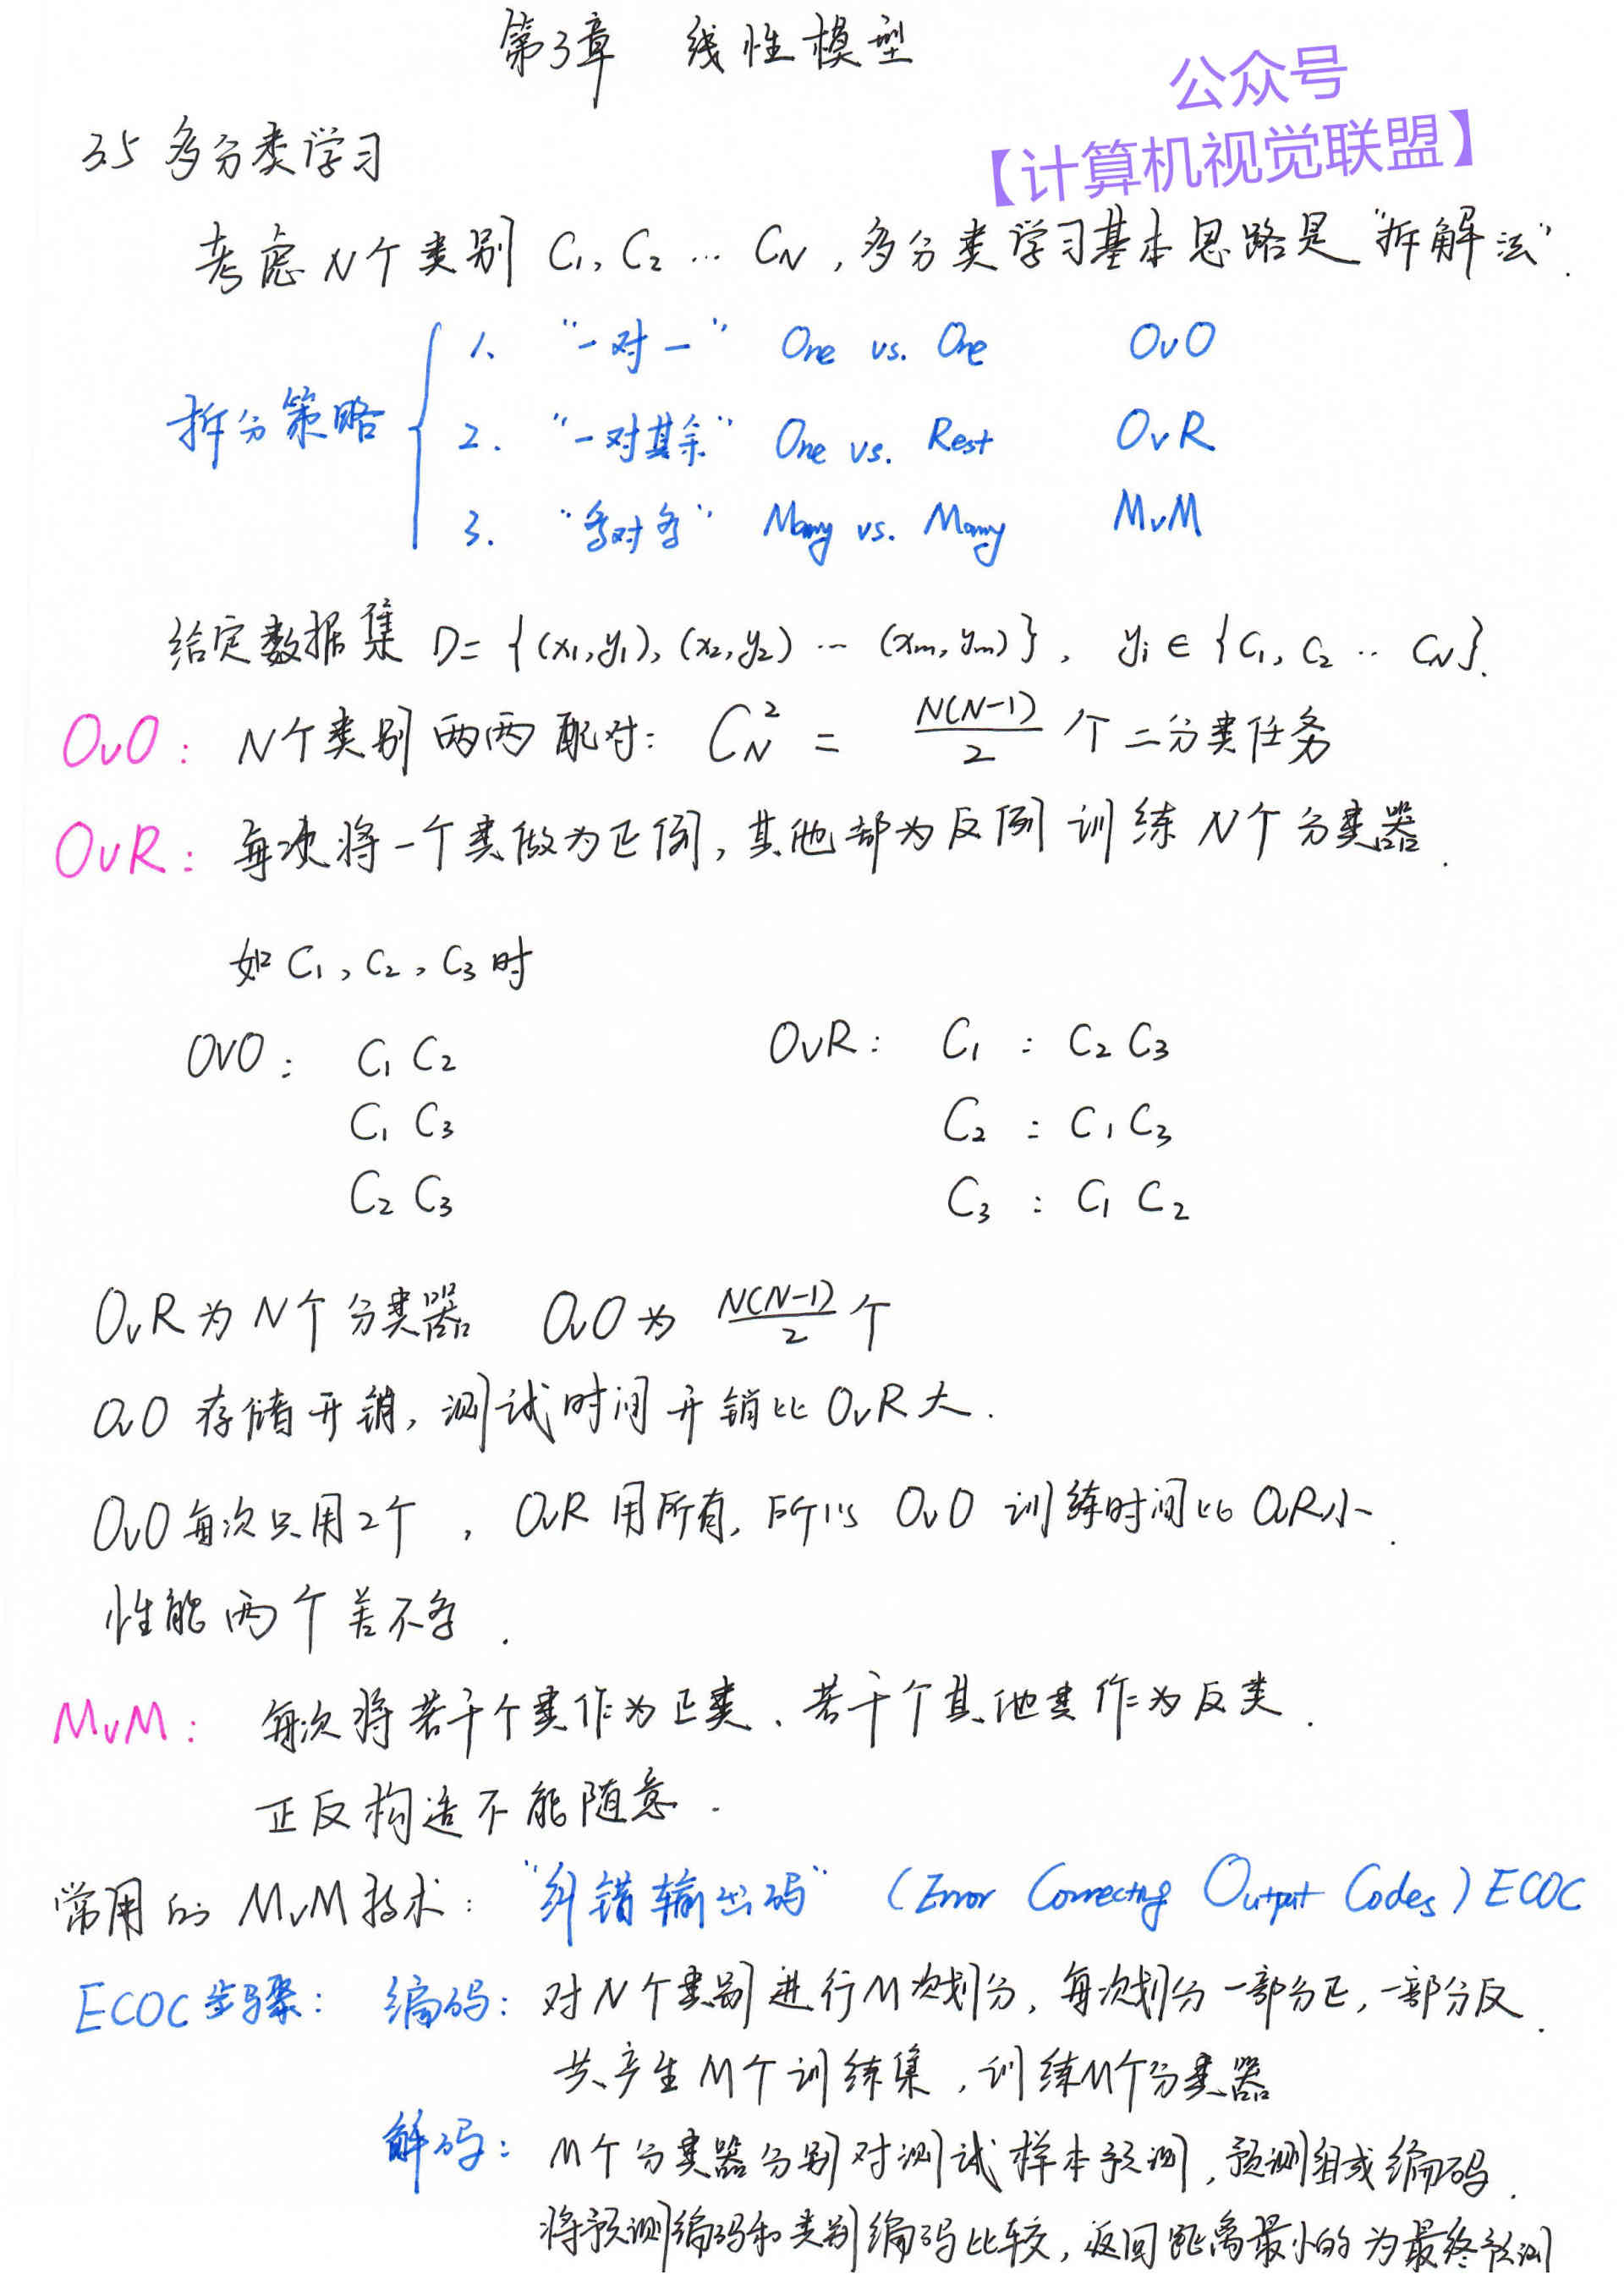 第3章 线性模型
公众号
【计算机视觉联盟】
3.5 多分类学习
考虑N个类别 C₁, C₂ … C_N, 多分类学习基本思路是"拆解法".
拆分策略
1、 "一对一" One vs. One OvO
2. "一对其余" One vs. Rest OvR
3. "多对多" Many vs. Many MvM
给定数据集 D = {(x₁,y₁), (x₂,y₂) … (xₘ,yₘ)}, yᵢ ∈ {C₁, C₂ … C_N}.
OvO: N个类别两两配对: C_N² = N(N-1)/2 个二分类任务
OvR: 每次将一个类做为正例, 其他部为反例 训练 N个分类器.
如 C₁, C₂, C₃ 时
OVO: C₁ C₂ OvR: C₁ : C₂ C₃
C₁ C₃ C₂ : C₁ C₃
C₂ C₃ C₃ : C₁ C₂
OvR为N个分类器 OvO为 N(N-1)/2 个
OvO 存储开销, 测试时间开销比 OvR大.
OvO每次只用2个, OvR用所有, 所以 OvO 训练时间比 OvR小.
性能两个差不多.
MvM: 每次将若干个类作为正类、若干个其他类作为反类.
正反构造不能随意.
常用的 MvM技术: "纠错输出码" (Error Correcting Output Codes) ECOC
ECOC步骤: 编码: 对N个类别进行M次划分, 每次划分一部分正, 一部分反.
共产生M个训练集, 训练M个分类器
解码: M个分类器分别对测试样本预测, 预测组成编码.
将预测编码和类别编码比较, 返回距离最小的为最终预测